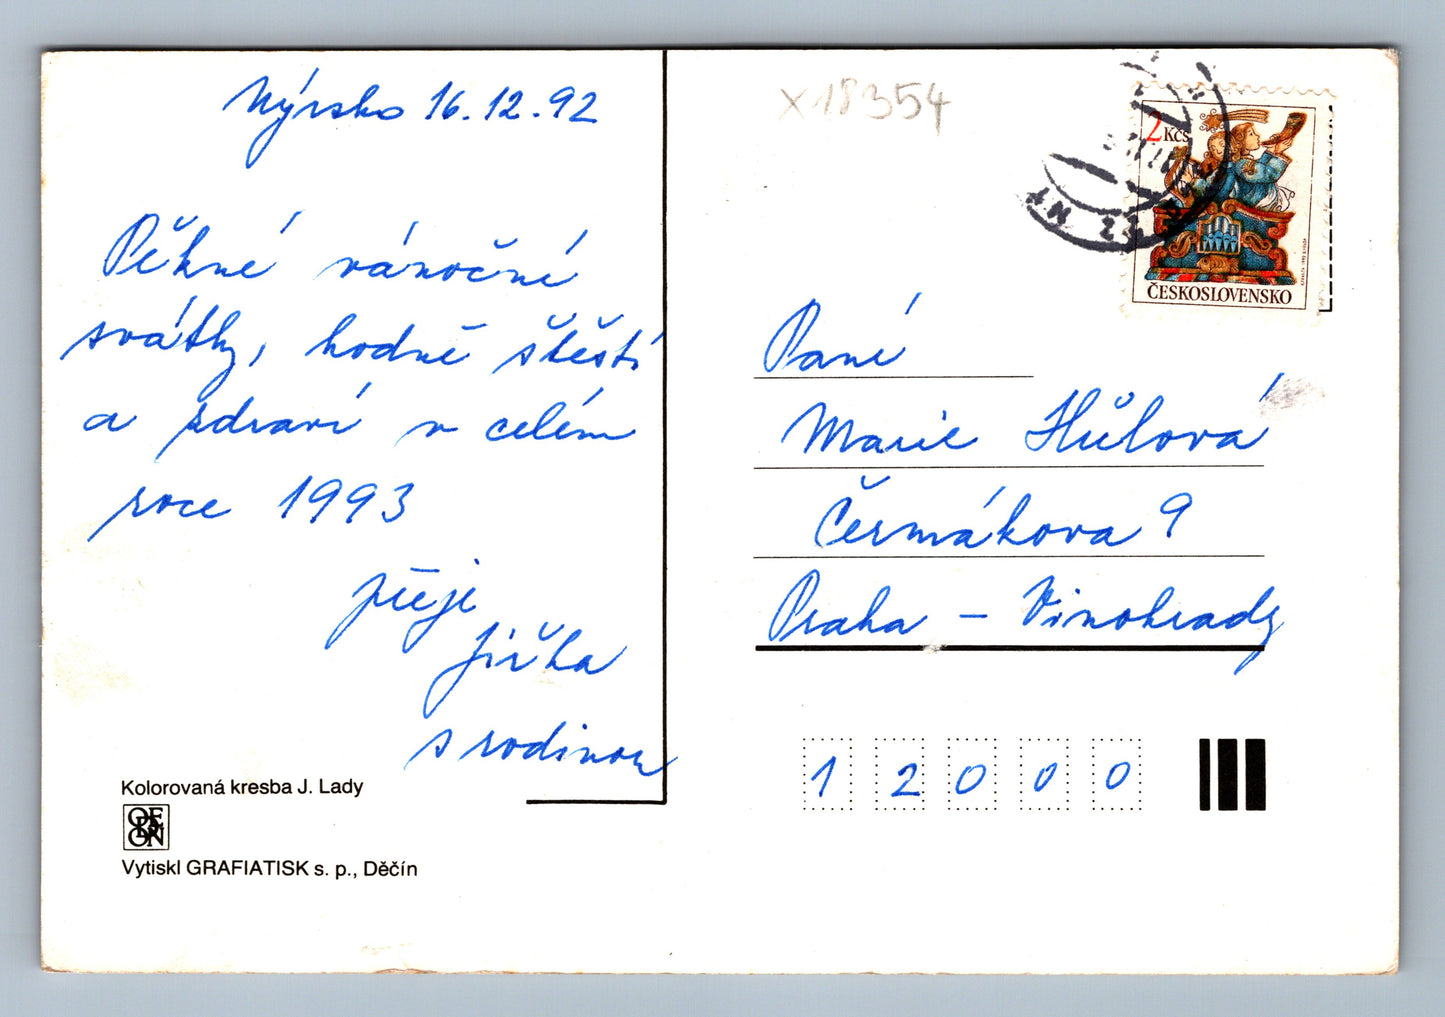 Nýrsko 16.12.92
Pěkné vánoční
svátky, hodně štěstí
a zdraví v celém
roce 1993
přeje
Jiřka
s rodinou
Kolorovaná kresba J. Lady
ODEON
Vytiskl GRAFIATISK s. p., Děčín
X18354
2 Kčs
ČESKOSLOVENSKO
Paní
Marie Hůlová
Čermákova 9
Praha – Vinohrady
1 2 0 0 0